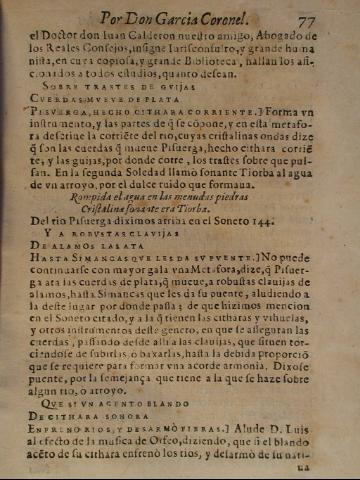 Por Don Garcia Coronel. 77
el Doctor don Iuan Calderon nuestro amigo, Abogado de
los Reales Consejos, insigne Iurisconsulto, y grande huma
nista, en cuya copiosa, y grande Biblioteca, hallan los afi-
cionados a todos estudios, quanto desean.
SOBRE TRASTES DE GVIJAS
CVERDAS MVEVE DE PLATA
PISVERGA, HECHO CITHARA CORRIENTE.] Forma vn
instrumento, y las partes de q̃ se cõpone, y en esta metafo-
ra descriue la corriẽte del rio, cuyas cristalinas ondas dize
q̃ son las cuerdas q̃ mueue Pisuerga, hecho cithara corriẽ
te, y las guijas, por donde corre, los trastes sobre que pul-
san. En la segunda Soledad llamò sonante Tiorba al agua
de vn arroyo, por el dulce ruido que formaua.
Rompida el agua en las menudas piedras
Cristalina sonante era Tiorba.
Del rio Pisuerga diximos arriba en el Soneto 144.
Y A ROBVSTAS CLAVIJAS
DE ALAMOS LAS ATA
HASTA SIMANCAS QVE LES DA SV PVENTE.] No puede
continuarse con mayor gala vna Metafora, dize, q̃ Pisuer-
ga ata las cuerdas de plata, q̃ mueue, a robustas clauijas de
alamos, hasta Simancas que les dà su puente, aludiendo a
la deste lugar por donde passa; de que hizimos mencion
en el Soneto citado, y a la q̃ tienen las citharas y vihuelas,
y otros instrumentos deste genero, en que se asseguran las
cuerdas, passando desde alli a las clauijas, que suelen tor-
ciendose de subirlas, ò baxarlas, hasta la debida proporciõ
que se requiere para formar vna acorde armonia. Dixose
puente, por la semejança que tiene a la que se haze sobre
algun rio, o arroyo.
QVE SI VN ACENTO BLANDO
DE CITHARA SONORA
ENFRENO RIOS, Y DESARMÒ FIERAS.] Alude D. Luis
al efecto de la musica de Orfeo, diziendo, que si el blando
acẽto de su cithara enfrenò los rios, y desarmò de su nati-
ua